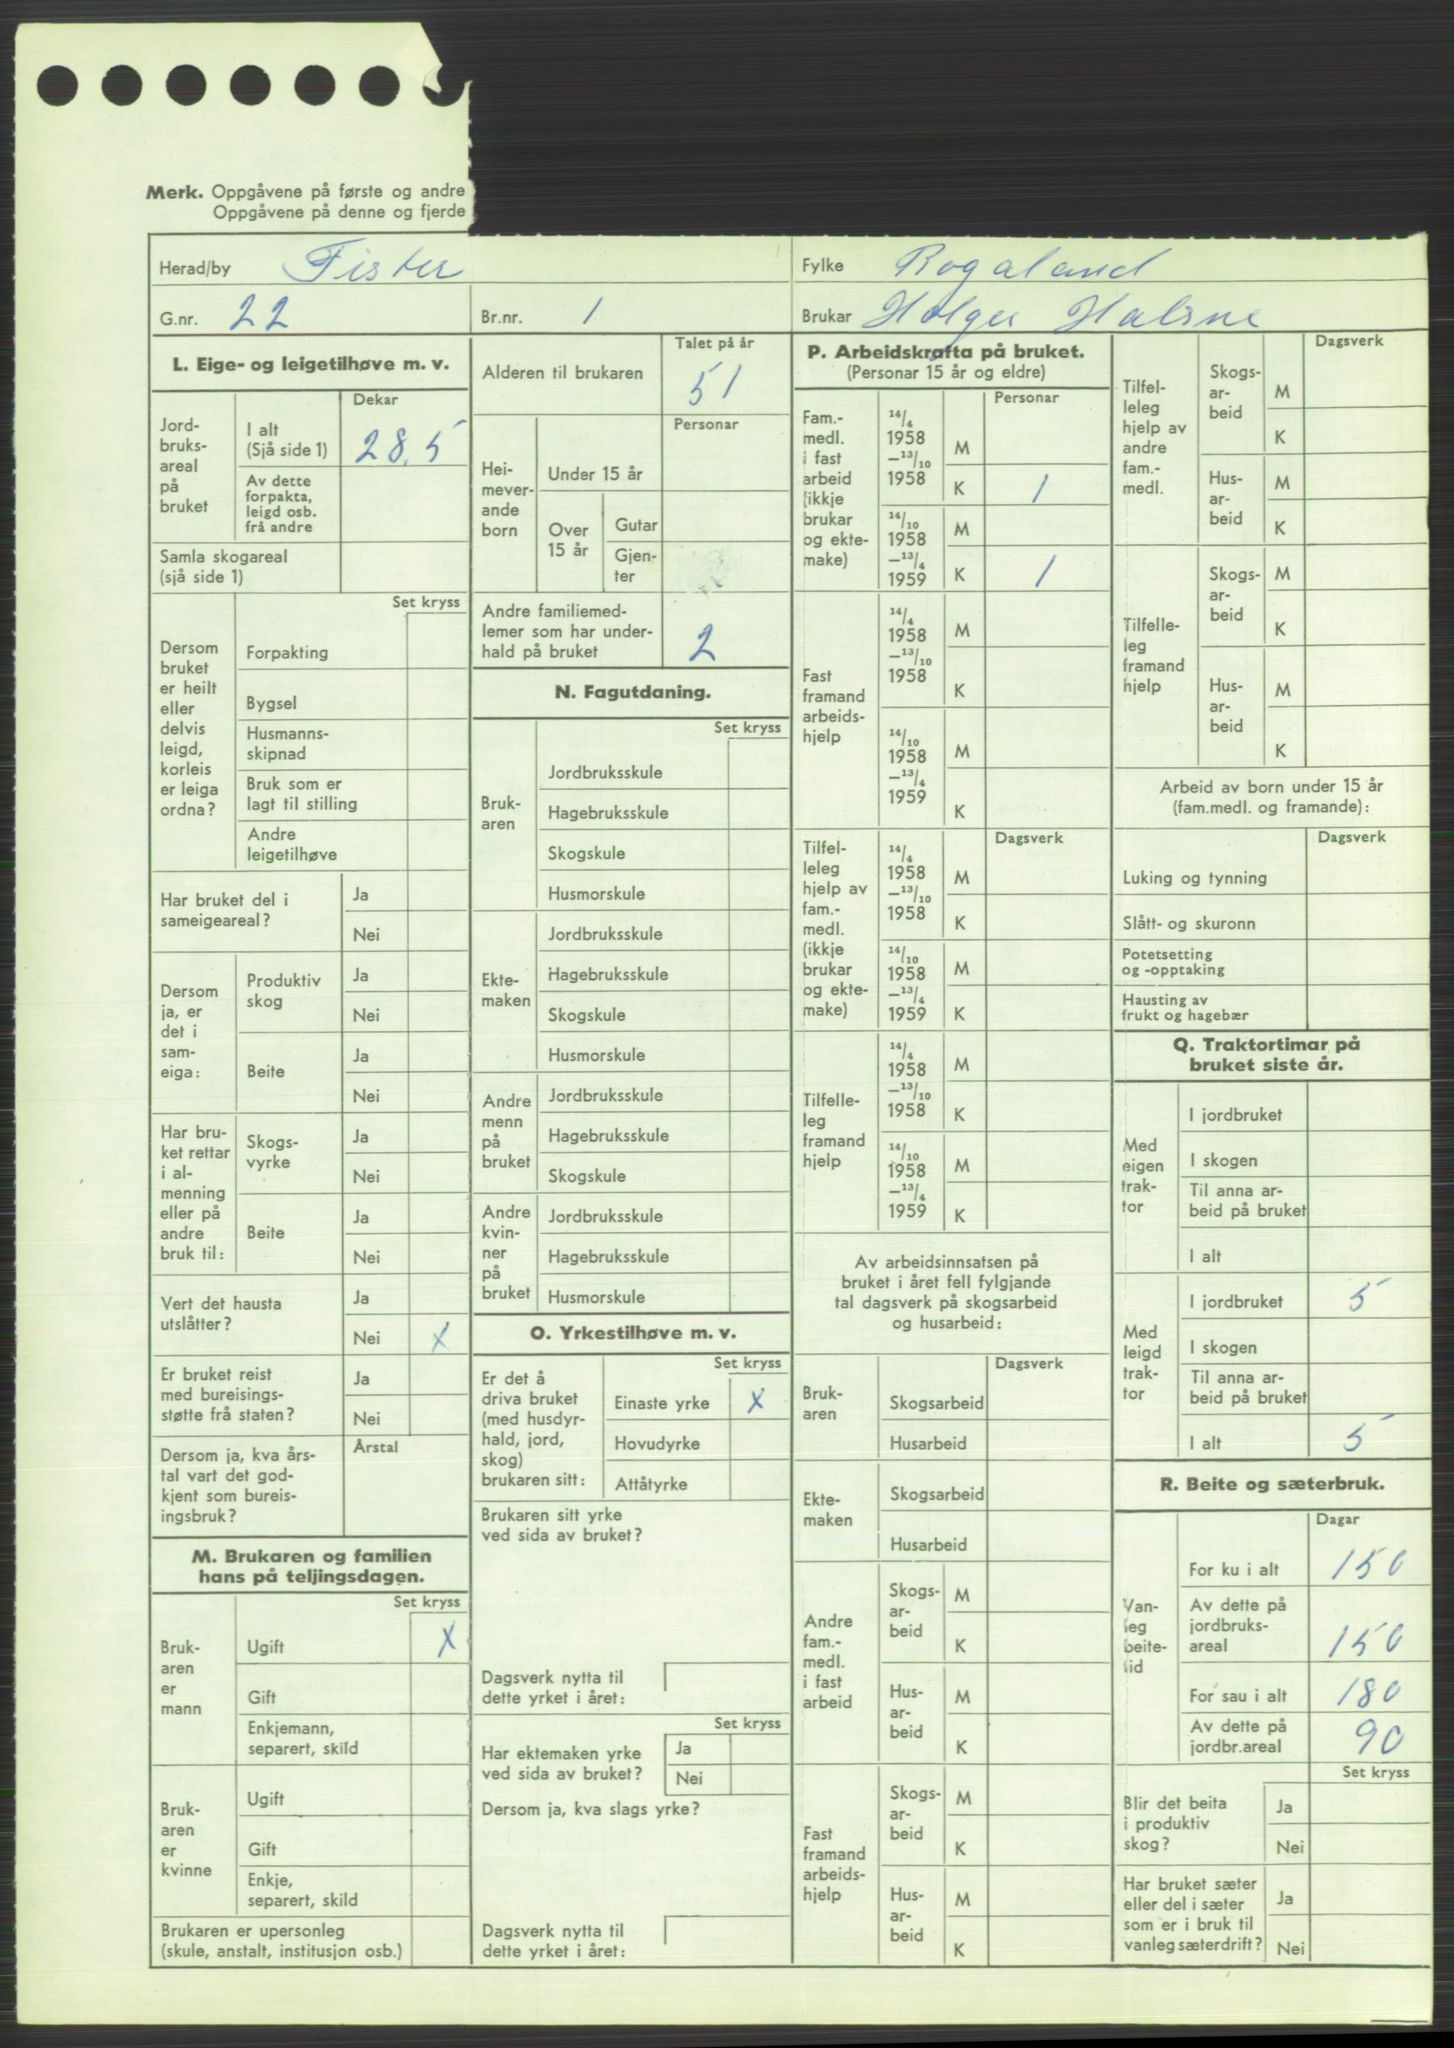 Merk. Oppgåvene på første og andre
Oppgåvene på denne og fjerde
Herad/by Fister
Fylke Rogaland
G.nr. 22
Br.nr. 1
Brukar Holger Halsne
L. Eige- og leigetilhøve m. v.
Dekar
Jord-
bruks-
areal
på
bruket
I alt
(Sjå side 1) 28,5
Av dette
forpakta,
leigd osb.
frå andre
Samla skogareal
(sjå side 1)
Set kryss
Dersom
bruket
er heilt
eller
delvis
leigd,
korleis
er leiga
ordna?
Forpakting
Bygsel
Husmanns-
skipnad
Bruk som er
lagt til stilling
Andre
leigetilhøve
Har bruket del i
sameigeareal?
Ja
Nei
Dersom
ja, er
det i
sam-
eiga:
Produktiv
skog
Ja
Nei
Beite
Ja
Nei
Har bru-
ket rettar
i al-
menning
eller på
andre
bruk til:
Skogs-
vyrke
Ja
Nei
Beite
Ja
Nei
Vert det hausta
utslåtter?
Ja
Nei X
Er bruket reist
med bureisings-
støtte frå staten?
Ja
Nei
Dersom ja, kva års-
tal vart det god-
kjent som bureis-
ingsbruk?
Årstal
M. Brukaren og familien
hans på teljingsdagen.
Set kryss
Bruk-
aren
er
mann
Ugift X
Gift
Enkjemann,
separert, skild
Bruk-
aren
er
kvinne
Ugift
Gift
Enkje,
separert, skild
Brukaren er upersonleg
(skule, anstalt, institusjon osb.)
Talet på år
Alderen til brukaren 51
Personar
Hei-
mever-
ande
born
Under 15 år
Over
15 år
Gutar
Gjen-
ter
Andre familiemed-
lemer som har under-
hald på bruket 2
N. Fagutdaning.
Set kryss
Bruk-
aren
Jordbruksskule
Hagebruksskule
Skogskule
Husmorskule
Ekte-
maken
Jordbruksskule
Hagebruksskule
Skogskule
Husmorskule
Andre
menn
på
bruket
Jordbruksskule
Hagebruksskule
Skogskule
Andre
kvin-
ner
på
bruket
Jordbruksskule
Hagebruksskule
Husmorskule
O. Yrkestilhøve m. v.
Set kryss
Er det å
driva bruket
(med husdyr-
hald, jord,
skog)
brukaren sitt:
Einaste yrke X
Hovudyrke
Attåtyrke
Brukaren sitt yrke
ved sida av bruket?
Dagsverk nytta til
dette yrket i året:
Set kryss
Har ektemaken yrke
ved sida av bruket?
Ja
Nei
Dersom ja, kva slags yrke?
Dagsverk nytta til
dette yrket i året:
P. Arbeidskrafta på bruket.
(Personar 15 år og eldre)
Personar
Fam.-
medl.
i fast
arbeid
(ikkje
brukar
og ekte-
make)
14/4
1958
—13/10
1958
M
K 1
14/10
1958
—13/4
1959
M
K 1
Fast
framand
arbeids-
hjelp
14/4
1958
—13/10
1958
M
K
14/10
1958
—13/4
1959
M
K
Dagsverk
Tilfel-
leleg
hjelp av
fam.-
medl.
(ikkje
brukar
og ekte-
make)
14/4
1958
—13/10
1958
M
K
14/10
1958
—13/4
1959
M
K
Tilfelle-
leg
framand
hjelp
14/4
1958
—13/10
1958
M
K
14/10
1958
—13/4
1959
M
K
Av arbeidsinnsatsen på
bruket i året fell fylgjande
tal dagsverk på skogsarbeid
og husarbeid:
Dagsverk
Bruk-
aren
Skogsarbeid
Husarbeid
Ekte-
maken
Skogsarbeid
Husarbeid
Andre
fam.-
medl.
i fast
arbeid
Skogs-
ar-
beid
M
K
Hus-
ar-
beid
M
K
Fast
framand
arbeids-
hjelp
Skogs-
ar-
beid
M
K
Hus-
ar-
beid
M
K
Dagsverk
Tilfel-
leleg
hjelp av
andre
fam.-
medl.
Skogs-
ar-
beid
M
K
Hus-
ar-
beid
M
K
Tilfelle-
leg
framand
hjelp
Skogs-
ar-
beid
M
K
Hus-
ar-
beid
M
K
Arbeid av born under 15 år
(fam.medl. og framande):
Dagsverk
Luking og tynning
Slått- og skuronn
Potetsetting
og -opptaking
Hausting av
frukt og hagebær
Q. Traktortimar på
bruket siste år.
Med
eigen
trak-
tor
I jordbruket
I skogen
Til anna ar-
beid på bruket
I alt
Med
leigd
trak-
tor
I jordbruket 5
I skogen
Til anna ar-
beid på bruket
I alt 5
R. Beite og sæterbruk.
Dagar
Van-
leg
beite-
tid
For ku i alt 150
Av dette på
jordbruks-
areal 150
For sau i alt 180
Av dette på
jordbr.areal 90
Set kryss
Blir det beita
i produktiv
skog?
Ja
Nei
Har bruket sæter
eller del i sæter
som er i bruk til
vanleg sæterdrift?
Ja
Nei